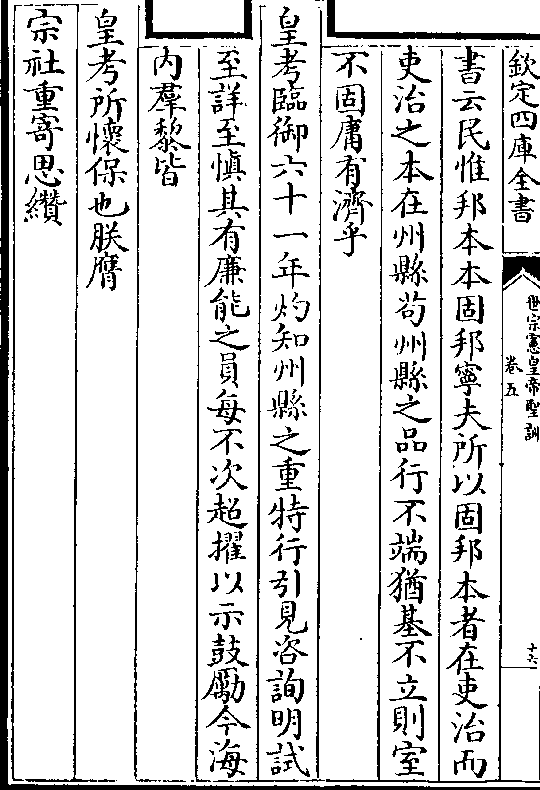 欽定四庫全書
世宗憲皇帝聖訓
卷五
十六
書云民惟邦本本固邦寧夫所以固邦本者在吏治而
吏治之本在州縣茍州縣之品行不端猶基不立則室
不固庸有濟乎
皇考臨御六十一年灼知州縣之重特行引見咨詢明試
至詳至慎其有廉能之員每不次超擢以示鼓勵今海
内羣黎皆
皇考所懷保也朕膺
宗社重寄思纉